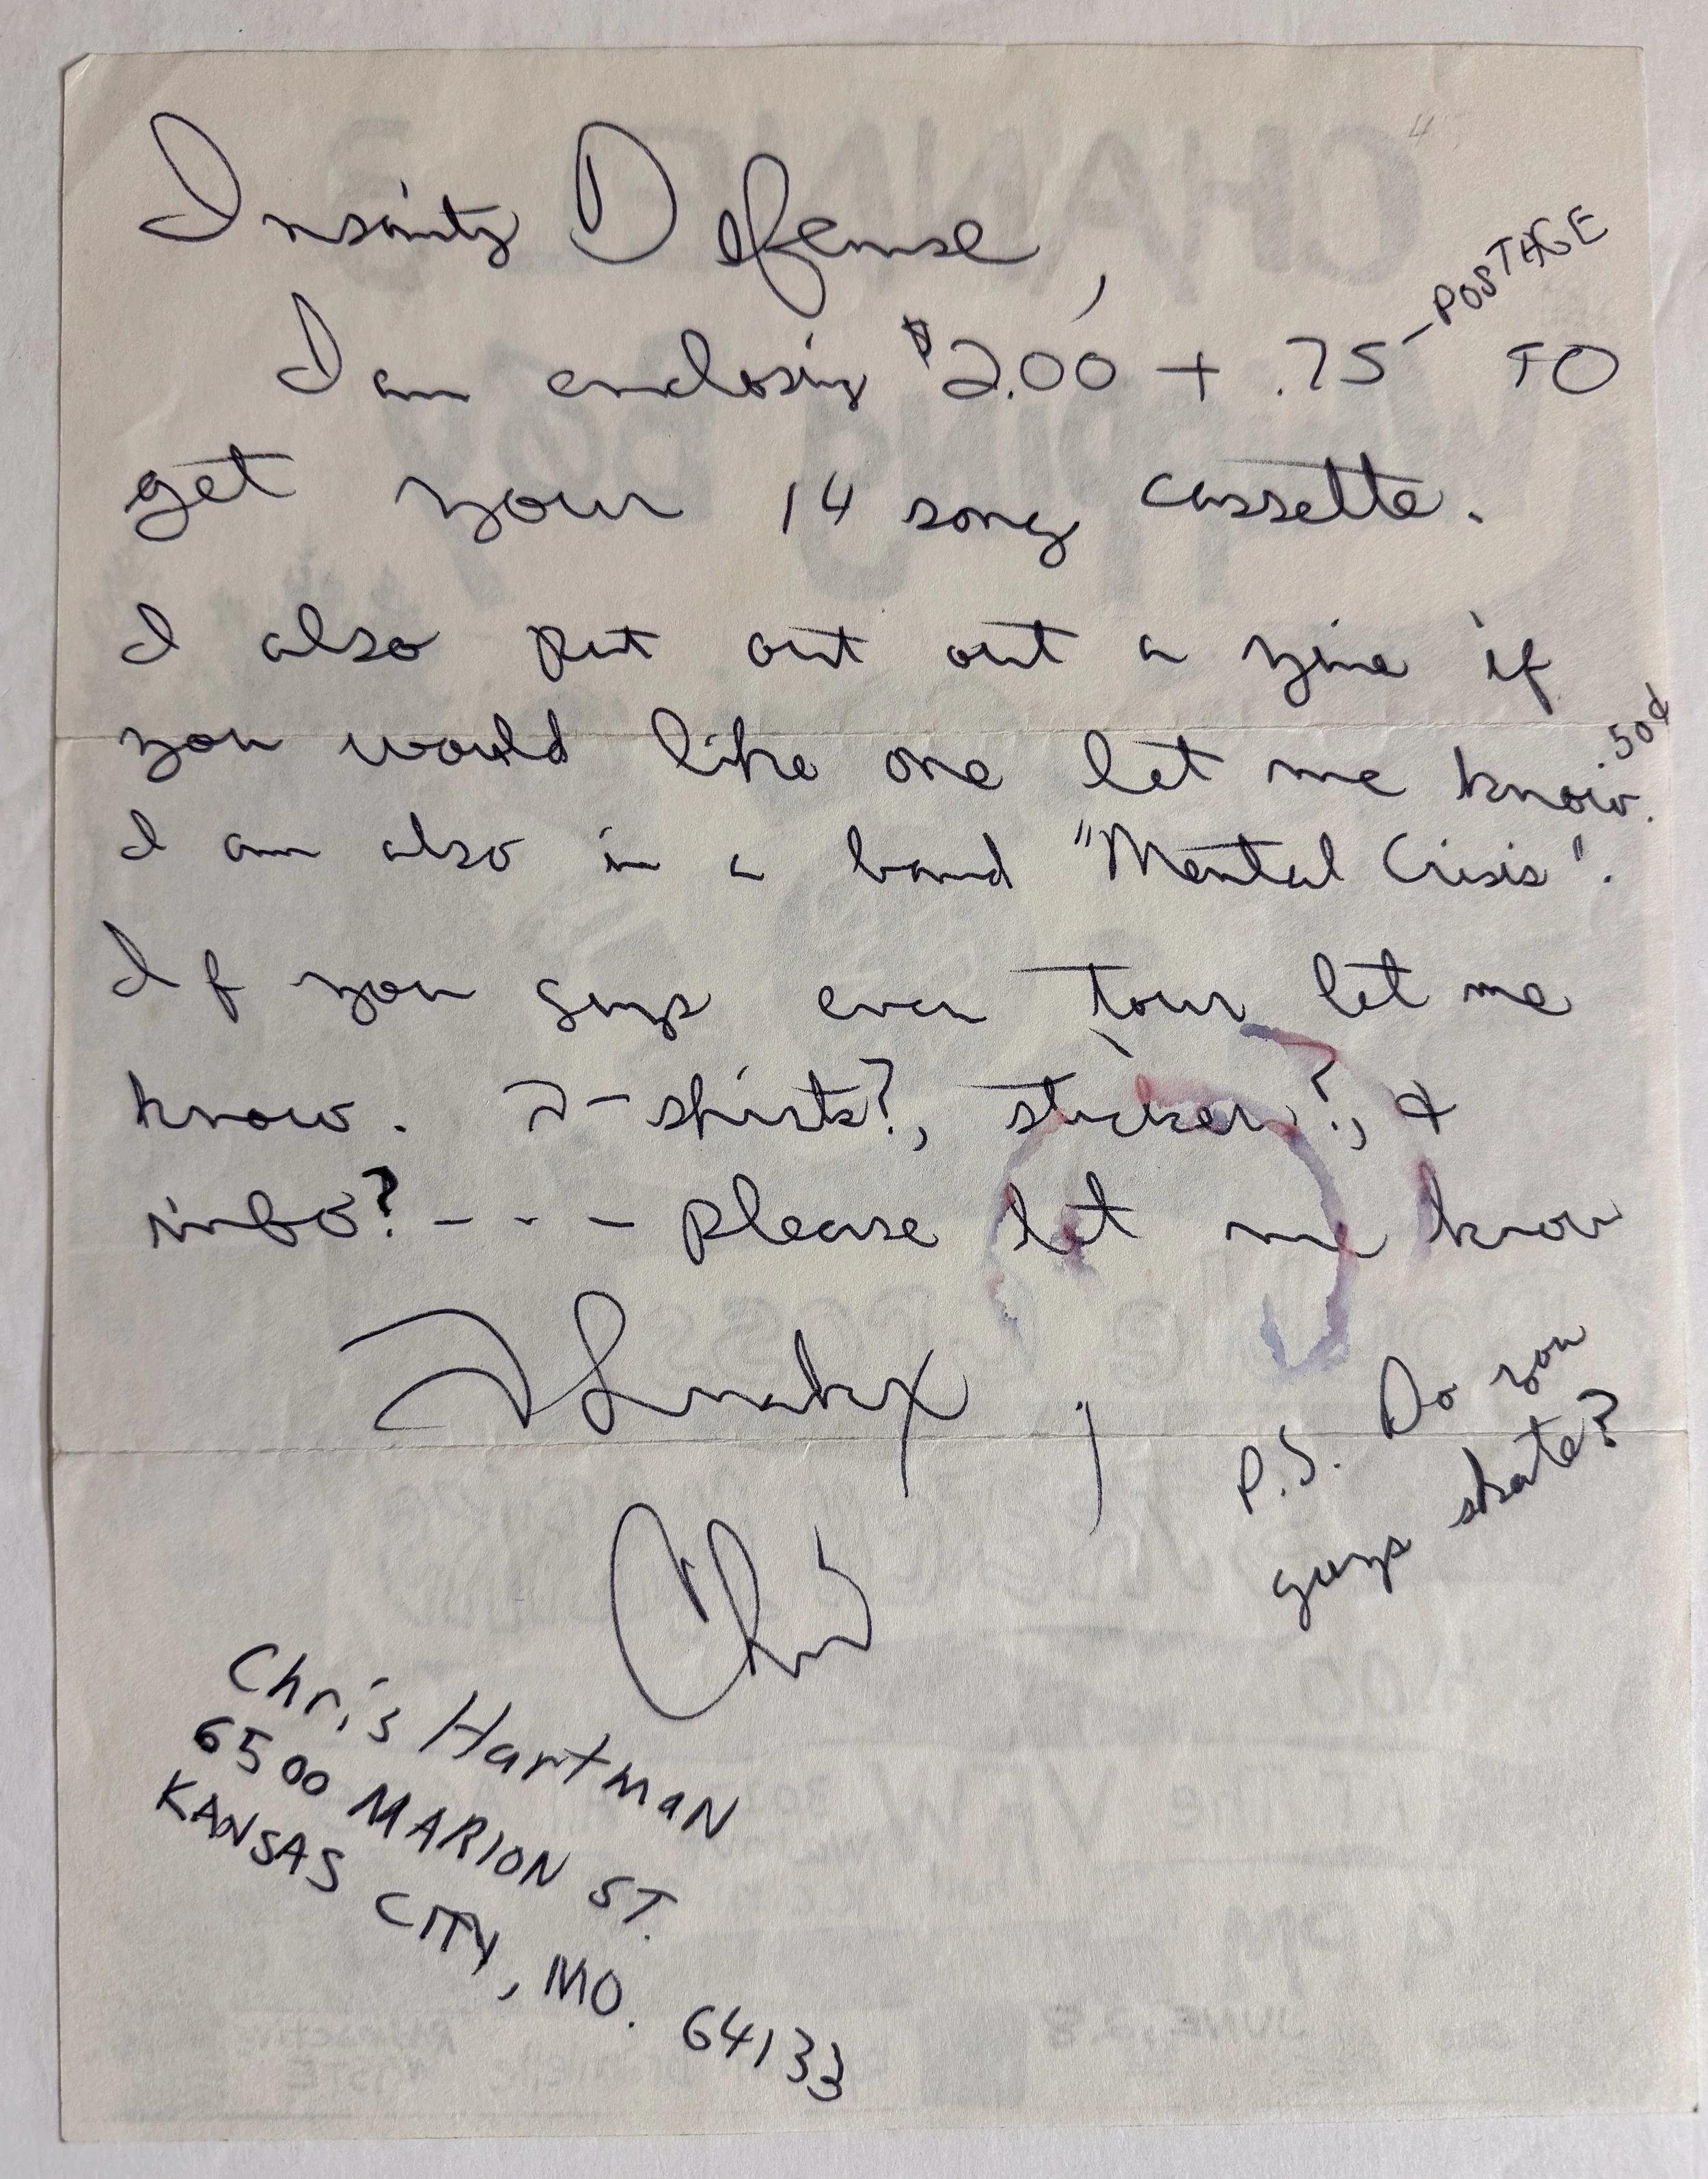 Insanity Defense,
I am enclosing $2.00 + .75 - POSTAGE TO
get your 14 song cassette.
I also put out out a zine if
you would like one let me know. .50¢
I am also in a band "Mental Crisis".
If you guys ever tour let me
know. T-shirts?, sticker?, &
info? - - - please let me know
Thankx,
Chris
P.S. Do you
guys skate?
Chris Hartman
6500 MARION ST.
KANSAS CITY, MO. 64133
CHANNEL 3
Whipping Boy
9 PM
JUNE 28